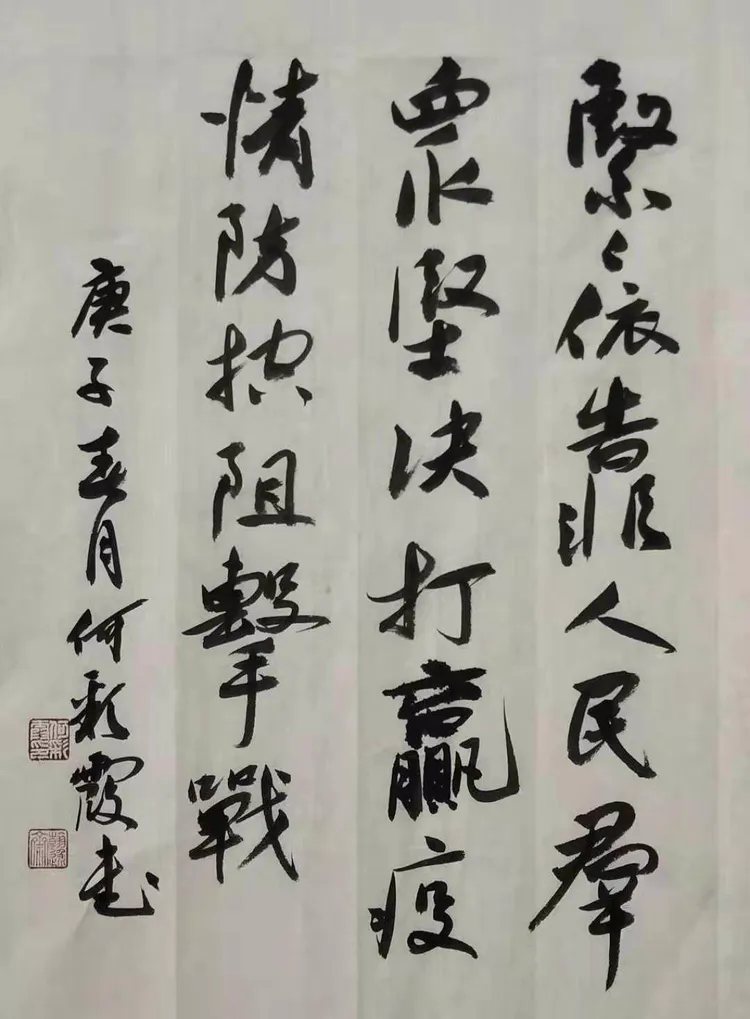 緊〻依靠人民羣
眾堅決打贏疫
情防控阻擊戰
庚子春月何彩霞書